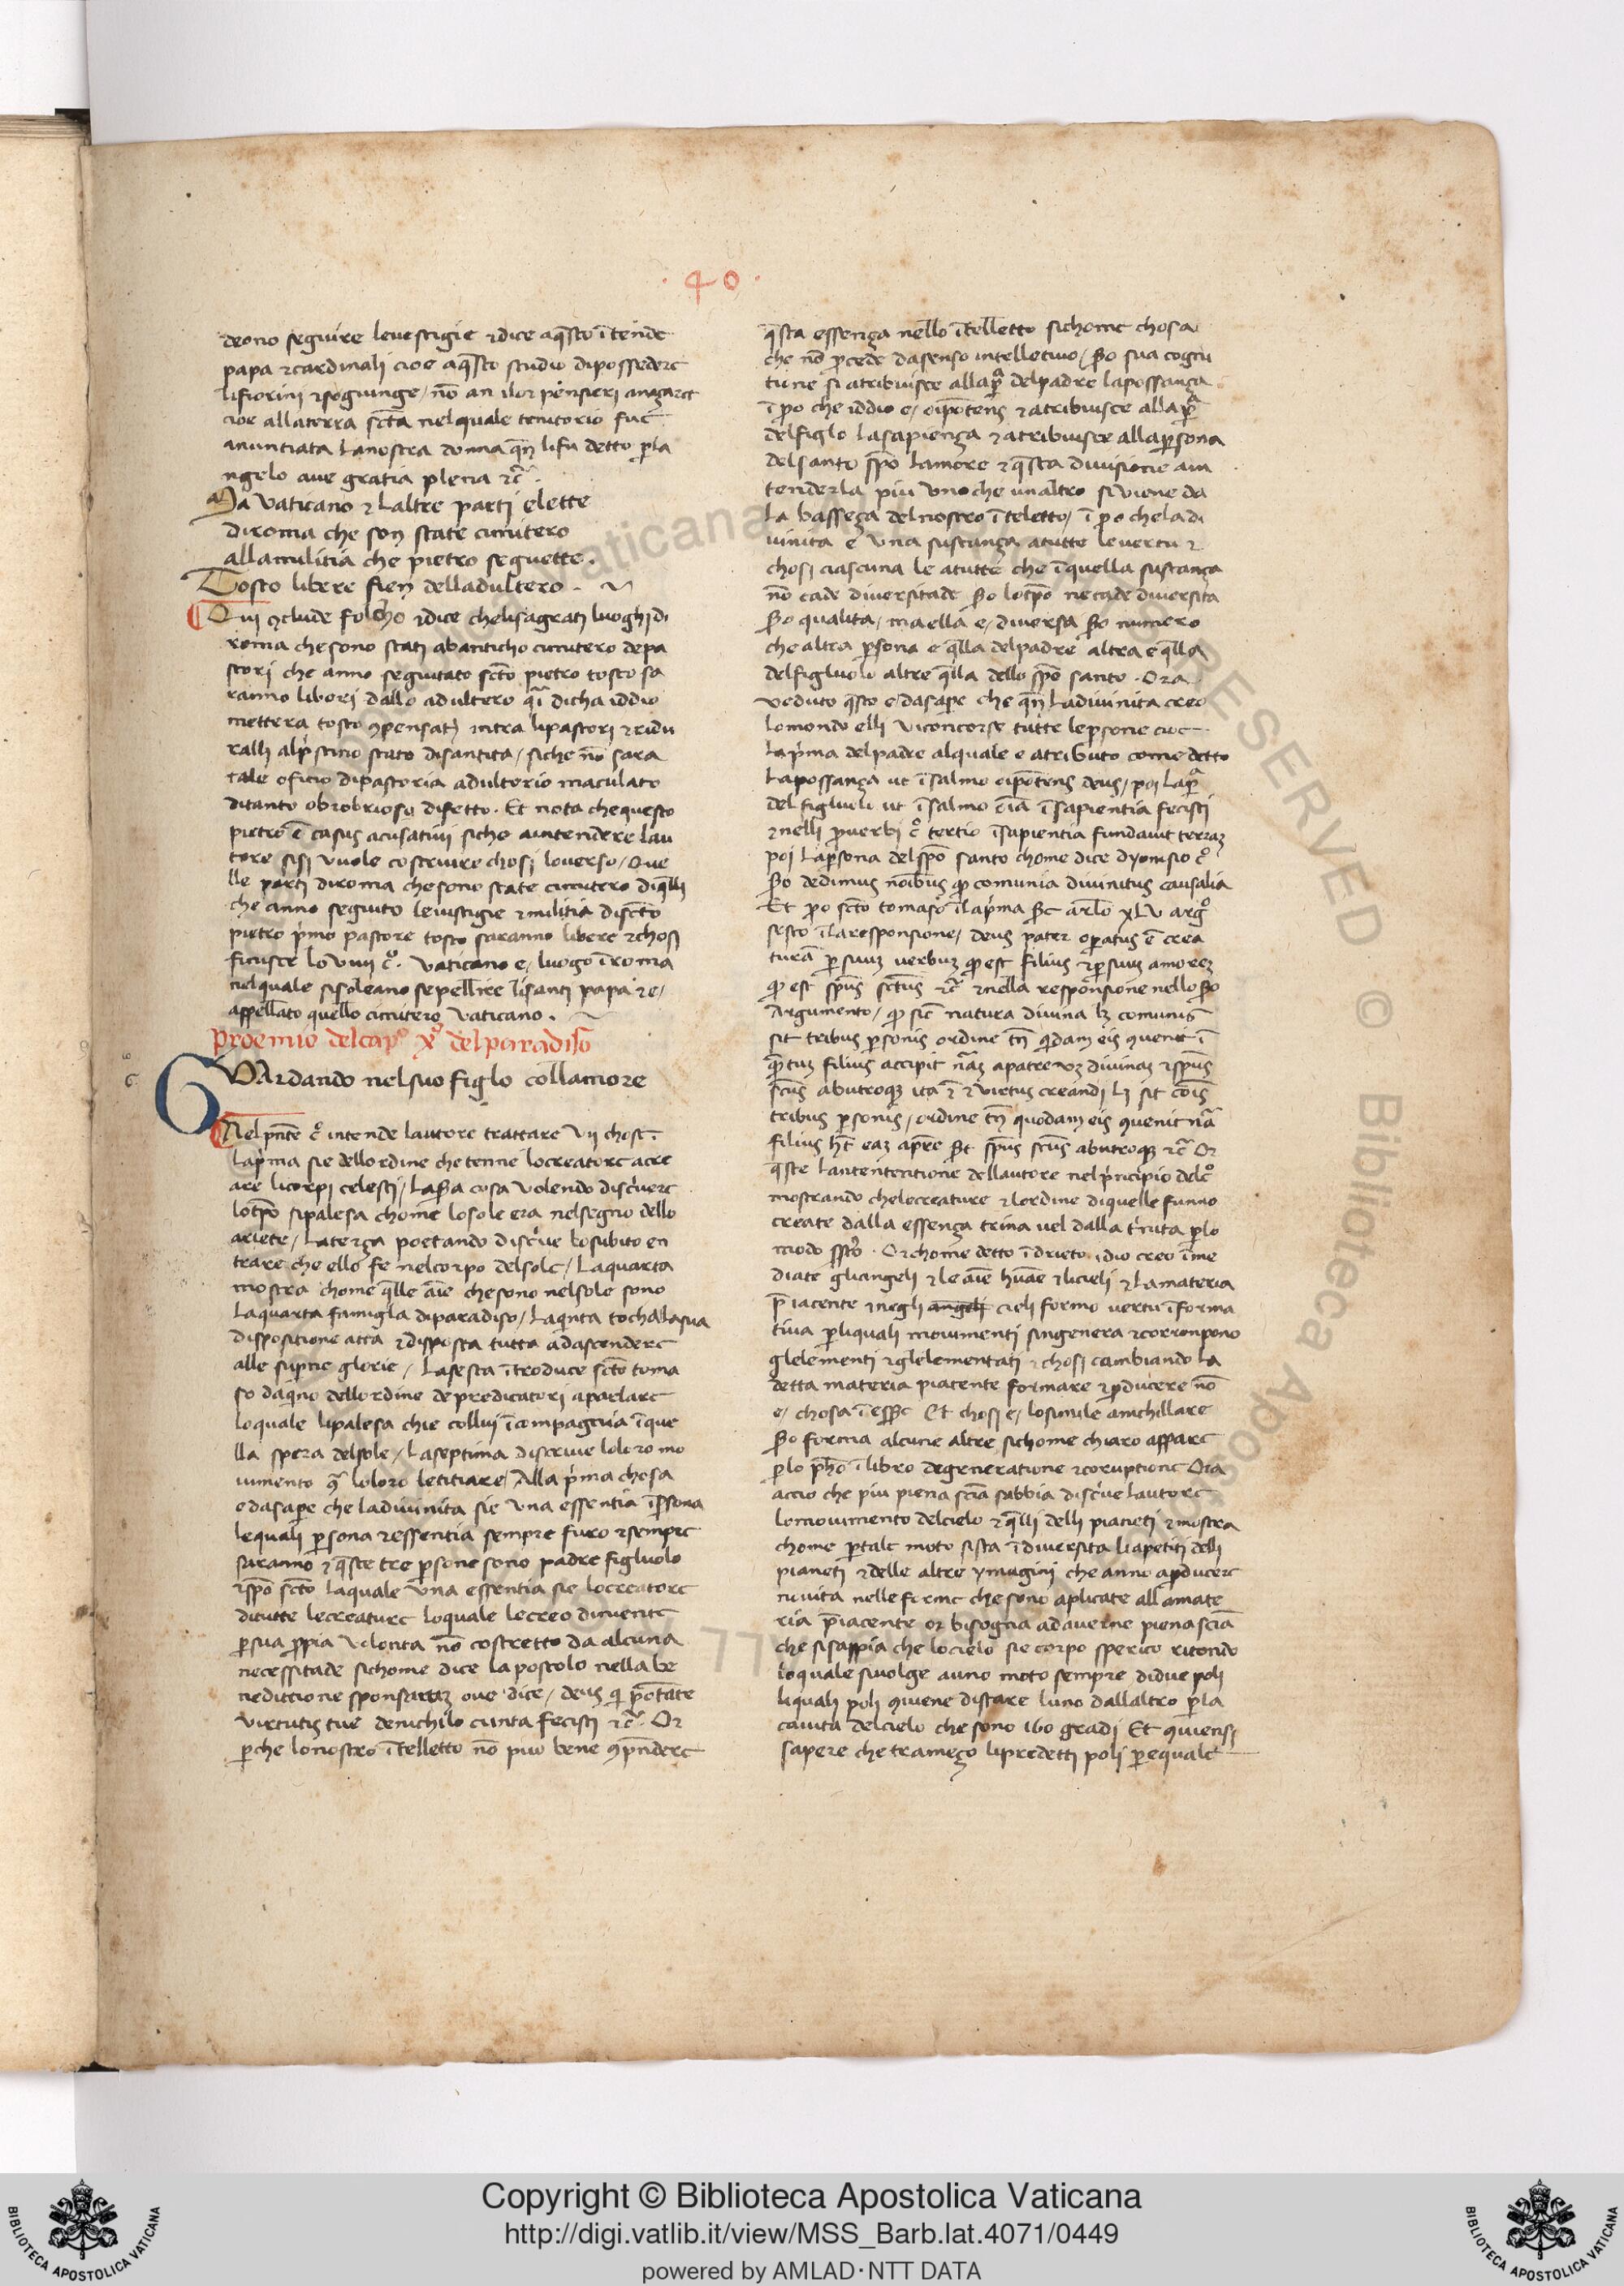 · 40 ·
deono seguire levestigie ⁊dice aq̄sto ītende
papa ⁊cardinali cioe aq̄sto studio dipossedere
lifiorini ⁊sogiunge / nō an ilor pensieri anaçaret
cioe allaterra sc̄ta nelquale teritorio fue
anuntiata lanostra donna qn̄ lifu detto p̱la
ngelo aue gratia plena ⁊c̄.
Ma Vaticano ⁊ Laltre parti elette
diroma che son state cimitero
allamilitia che pietro seguette.
Tosto libere fien delladultero.
Qui ꝯclude folcho ⁊dice chelisagrati luoghi di
roma chesono stati abanticho cimitero depa
stori che anno seguitato sc̄to pietro tosto sa
ranno liberi dallo adultero q̄i dicha iddio
mettera tosto ꝯpensat intra lipastori ⁊ridu
ralli alp̱stino stato disantita / siche nō sara
tale oficio dipastoria adulterio maculato
ditanto obrobrioso difetto. Et nota chequesto
pietro ē casus acusatiui siche aintendere lau
tore sisi vuole costruire chosi louerso / Que
lle parti diroma chesono state cimitero diq̄lli
che anno seguito leuistigie ⁊militia disc̄to
pietro p̱mo pastore tosto saranno libere ⁊chosi
finisce lo Viiii c̊. Vaticano e / luogo īroma
nelquale sisoleano sepellire lisanti papa ⁊e /
appellato quello cimitero Vaticano.
Proemio delcap̊ x̊ delparadiso
G
VArdando nelsuo figlo collamore
Nelpn̄te c̊ intende lautore trattare Vij chose.
Lap̱ma sie dellordine che tenne locreatore acre
are licorpi celesti / La ẞa cosa volendo discriuere
lotp̄o sipalesa chome losole era nelsegno dello
ariete / Laterça poetando discriue losubito en
trare che ello fe nelcorpo delsole / Laquarta
mostra chome q̄lle aīe chesono nelsole sono
Laquarta famigla diparadiso / Laq̱nta tocha lasua
dispositione atta ⁊disposta tutta adascendere
alle sup̱ne glorie / Lasesta ītroduce sc̄to toma
so daq̱no dellordine de predicatori aparlare
loquale lipalesa chie collui īcompagnia īque
lla spera delsole / Laseptima discriue loloro mo
uimento ⁊ loloro letitiare / Alla p̱ma chosa
e dasap̱e che ladiuinita sie una essentia īp̱sona
lequali p̱sona ⁊essentia sempre furo ⁊sempre
saranno ⁊ q̄ste tre p̱sone sono padre figluolo
⁊sp̄o sc̄to laquale una essentia sie locreatore
ditutte lecreature loquale lecreo diniente
p̱sua p̱pia volonta nō costretto da alcuna
necessitade sichome dice lapostolo nella be
nedittione sponsarum oue dice / deus qi p̱otāte
virtutis tue denichilo cunta fecisti ⁊c̄. Or
p̱che lonostro ītelletto nō puo bene ꝯpn̄dere
q̄sta essença nello ītelletto sichome chosa
che nō p̱cede dasenso intelletiuo / ẞo sua cogni
tione si atribuisce allap̱a delpadre lapossança
īp̱o che iddio e / oip̄otens ⁊atribuisce alla p̱a
delfiglo Lasapiença ⁊atribuisce allap̱sona
delsanto sp̄o Lamore ⁊q̄sta diuisione ain
tenderla piu uno che unaltro si uiene da
la basseça delnostro ītelletto / īp̱o cheladi
uinita e una sustança atutte leuertu ⁊
chosi ciascuna le atutte che īquella sustança
nō cade diuersitade ẞo lotp̄o ne cade diuersita
ẞo qualita / ma ella e / diuersa ẞo numero
che altra p̱sona e q̄lla delpadre altra e q̄lla
delfigluolo altre q̄lla dello sp̄o santo. Ora
veduto q̄sto e / dasap̱e che qn̄ Ladiuinita creo
lomondo elli uiconcorse tutte lep̱sone cioe
lap̱ma delpadre alquale e atributo come detto
Lapossança ut īsalmo oip̄otens deus / poi lap̱a
del figluolo ut īsalmo ēia īsapientia fecisti
⁊nelli p̱uerbi c̊ tertio īsapientia fundauit terraꝫ
poi lap̱sona delsp̄o santo chome dice dyonisio c̊
ẞo dedimus noībus qᷣ comunia diuinitus causalia
Et p̱o sc̄to tomaso īlap̱ma ẞe arl̄o xLV arg̊
sesto īlaresponsione / deus pater op̱atus ē crea
turā p̱suuꝫ uerbuꝫ qᷣ est filius ⁊p̱suuꝫ amoreꝫ
qᷣ est sp̄us sc̄tus ⁊c̄ ⁊nella responsione nello ẞo
Argumento / qᷣ sic̄ natura diuina lꝫ comunis
sit tribus p̱sonis ordine tn̄ q̱dam eis ꝯuenit ī
q̄ntuꝫ filius accipit nāꝫ apatre uꝫ diuinaꝫ ⁊sp̄us
sc̄us abutroqꝫ ita ī ⁊ virtus creandi lꝫ sit cōis
tribus p̱sonis / ordine tn̄ quodam eis ꝯuenit nā
filius h̄t eaꝫ ap̄re ẞt sp̄us sc̄us abutroqꝫ ⁊c̄ Or
q̄ste lantententione dellautore nelp̱ncipio delc̊
mostrando chelecreature ⁊lordine diquelle funno
create dalla essença trina uel dalla t̓nita p̱lo
modo ss̄to. Or chome detto īdrieto idio creo īme
diate gliangeli ⁊le aīe hūae ⁊licieli ⁊lamateria
p̄iacente ⁊negli angeli cieli formo uertu īforma
tiua p̱liquali mouimenti singenera ⁊corronpono
glelementi ⁊glelementati ⁊chosi cambiando la
detta materia piacente formare ⁊p̱ducere nō
e / chosa īesẞe Et chosi e / losimile anichillare
ẞo forma alcune altre sichome chiaro appare
p̱lo ph̄o īlibro degeneratione ⁊coruptione Ora
accio che piu piena sc̄ia sabbia discriue lautore
lomouimento delcielo ⁊q̄lli delli pianeti ⁊mostra
chome p̱tale moto sista īdiuersita liapetiti delli
pianeti ⁊delle altre ymagini che anno ap̱ducere
nouita nelle forme che sono aplicate allamate
ria p̄iacente or bisogna adauerne piena sciā
che sisappia che locielo sie corpo sperico ritondo
loquale siuolge auno moto sempre didue poli
liquali poli ꝯuiene distare luno dallaltro p̱la
cauita delcielo che sono 160 gradi Et ꝯuiensi
sapere che trameço lipredetti poli p̱equale
Copyright © Biblioteca Apostolica Vaticana
http://digi.vatlib.it/view/MSS_Barb.lat.4071/0449
powered by AMLAD·NTT DATA
BIBLIOTECA APOSTOLICA VATICANA
BIBLIOTECA APOSTOLICA VATICANA